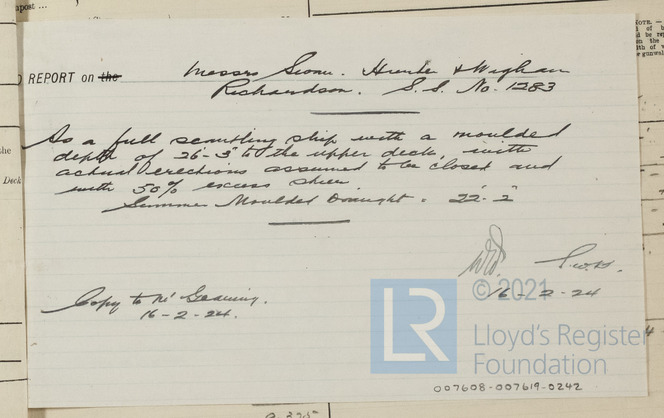 REPORT on the
Messrs Swan. Hunter & Wigham
Richardson. S.S. No. 1283
As a full scantling ship with a moulded
depth of 26'-3" to the upper deck, with
actual erections assumed to be closed and
with 50% excess sheer.
Summer Moulded Draught. 22'-2"
16-2-24
Copy to Mr Geaning.
16-2-24.
© 2021
LR
Lloyd's Register
Foundation
007608-007619-0242